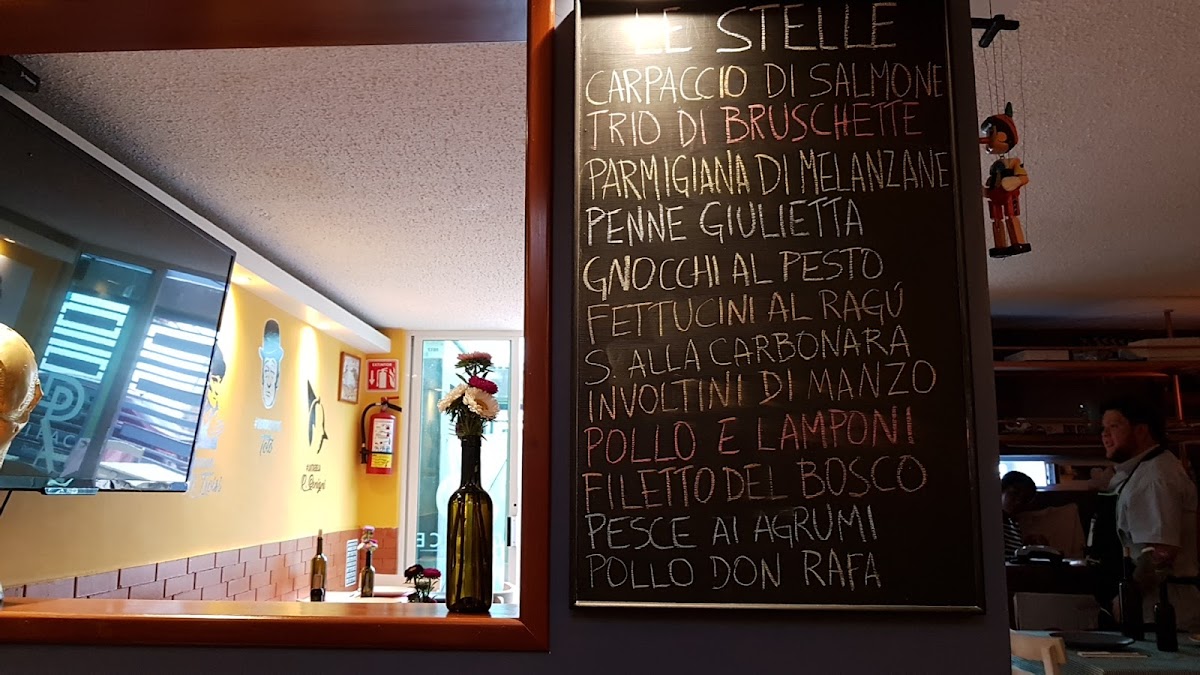 LE STELLE
CARPACCIO DI SALMONE
TRIO DI BRUSCHETTE
PARMIGIANA DI MELANZANE
PENNE GIULIETTA
GNOCCHI AL PESTO
FETTUCINI AL RAGÚ
S. ALLA CARBONARA
INVOLTINI DI MANZO
POLLO E LAMPONI
FILETTO DEL BOSCO
PESCE AI AGRUMI
POLLO DON RAFA
Totó